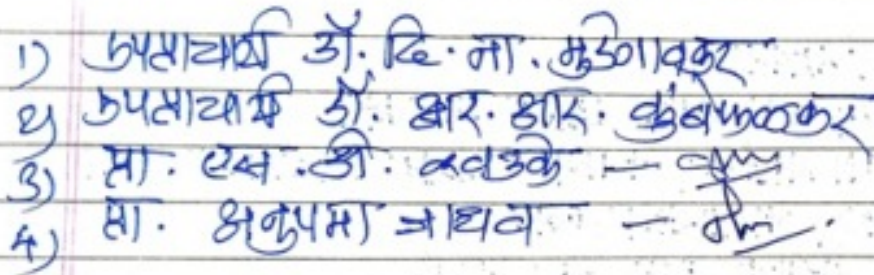 1) उपप्राचार्य डॉ. दि. ना. मुडेगावकर
2) उपप्राचार्य डॉ. आर. आर. कुंबेफळकर
3) प्रा. एस. डी. —
4) प्रा. अनुपमा जाधव —